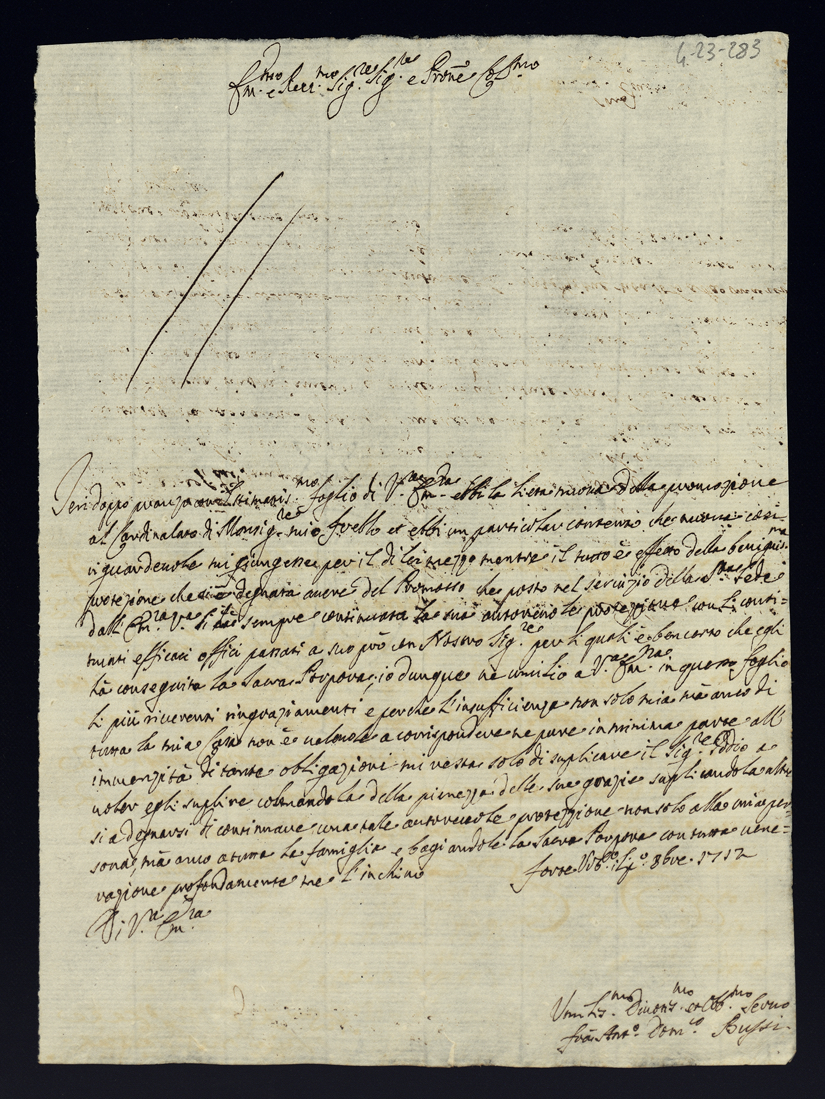 4.23-283
Em.mo e Rev.mo Sig.re Sig.re e Prone Col.mo
Jeri doppo pranzo con Stimatis.mo foglio di V.ra Em.za ebbi la lieta nuova della promozione
al Cardinalato di Monsig.re mio frello et ebbi un particular contento che nuova cosi
riguardevole mi giungesse per il di lei mezzo mentre il tutto è effetto della benignis.ma
protezione che si è degnata avere del Promosso che posto nel servizio della S.ta Sede
dall'Em.za V.ra li hà sempre continuata la sua autorevole protezzione con li conti=
nuati efficaci offici passati a suo prò con Nostro Sig.re per li quali è ben certo che egli
hà conseguita la Sacra Porpora; io dunque ne umilio a V.ra Em.za in questo foglio
li più riverenti ringraziamenti e perche l'insufficienza non solo mia mà anco di
tutta la mia Casa non è valevole a corrispondere ne pure in minima parte all'
immensità di tante obligazioni mi resta solo di suplicare il Sig.re Iddio a
voler egli suplire colmandola della pienezza delle sue grazie suplicandola altre
si a degnarsi di continuare una tale autorevole protezzione non solo alla mia per
sona, mà anco a tutta la famiglia e bagiandole la Sacra Porpora con tutta vene=
razione profondamente me l'inchino
forte Urb.o li 8bre 1712
Di V.ra Em.za
Umilis.mo Divotis.mo et Obb.mo Servo
frà Ant.o Dom.co Bussi